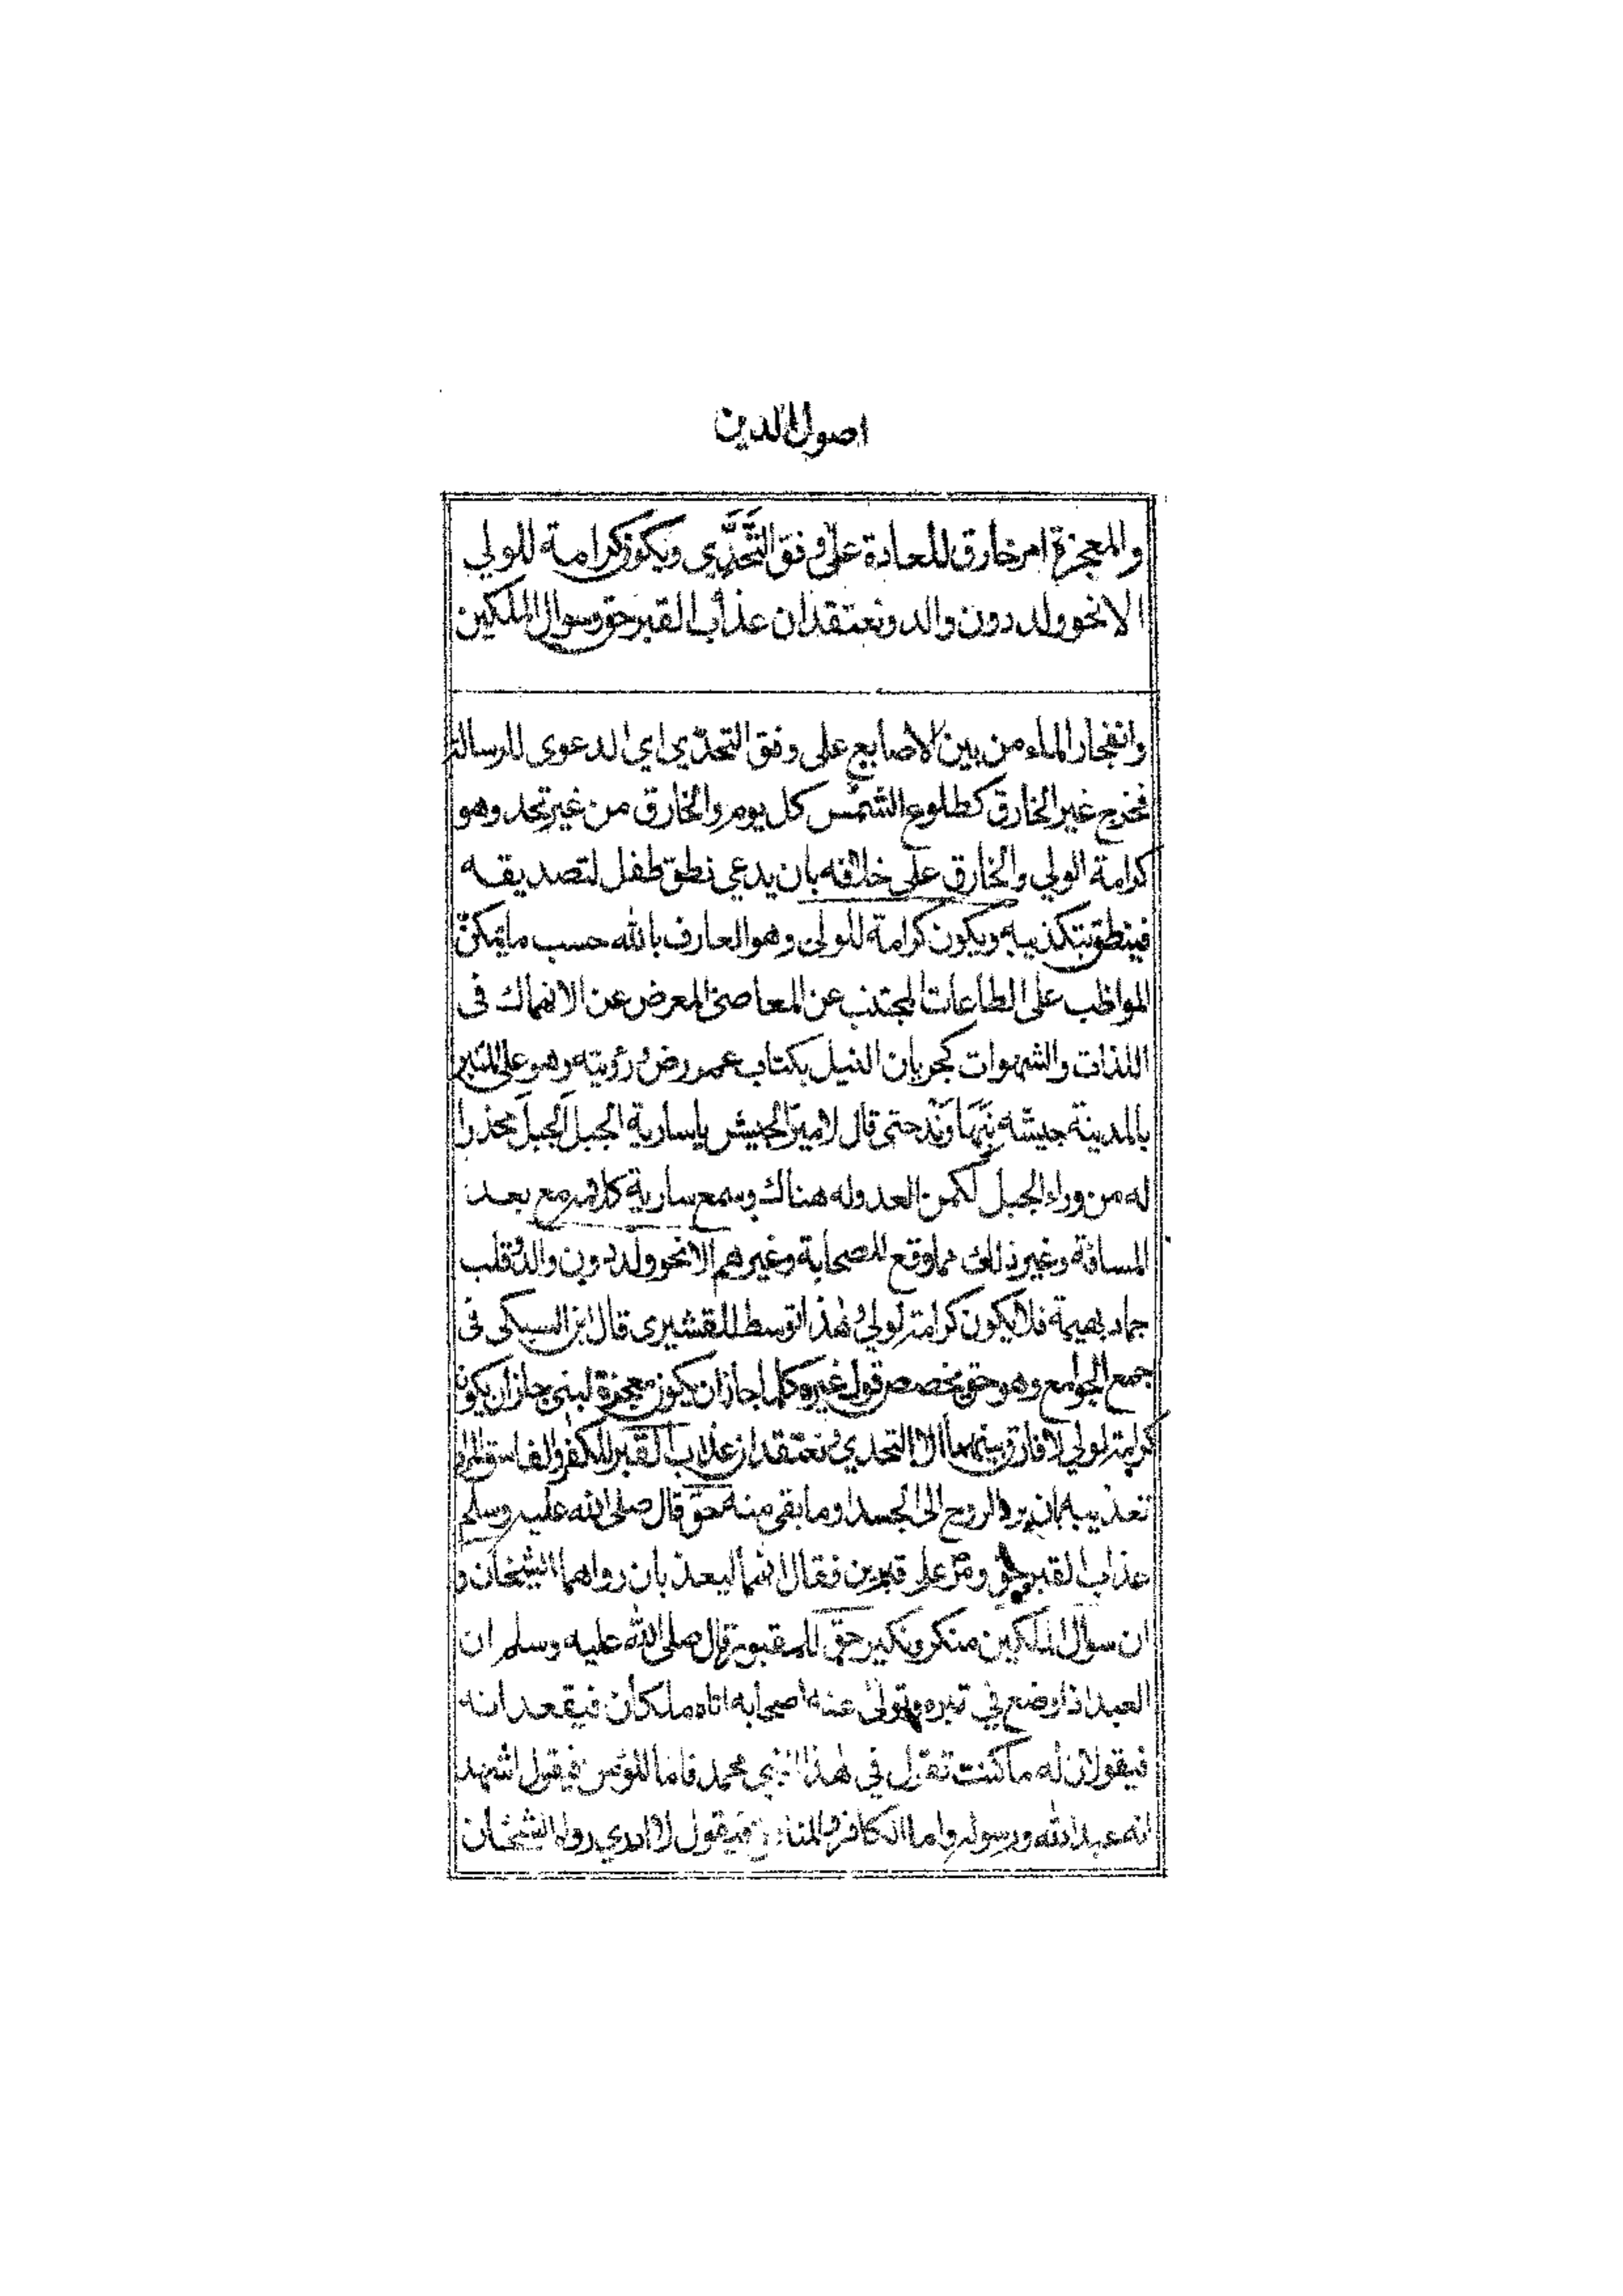 اصول الدين
والمعجزة امر خارق للعادة على وفق التَّحَدِّي ويكون كرامة للولي
الا نحو ولد دون والد ونعتقد ان عذاب القبر حق وسوال الملكين
وانفجار الماء من بين الاصابع على وفق التحدّي اي الدعوى للرسالة
فخرج غير الخارق كطلوع الشمس كل يوم والخارق من غير تحد وهو
كرامة الولي والخارق على خلافه بان يدعي نطق طفل لتصديقه
فينطق بتكذيبه ويكون كرامة للولي وهو العارف بالله حسب ما يمكن
المواظب على الطاعات المجتنب عن المعاصي المعرض عن الانهماك فى
اللذات والشهوات كجريان النيل بكتاب عمر رض ورؤيته وهو على المنبر
بالمدينة جيشه بنَهَاوَنْد حتى قال لامير الجيش يا سارية الجبل الجبل محذرا
له من وراء الجبل لكمن العدو له هناك وسمع سارية كلامه مع بعد
المسافة وغير ذلك مما وقع للصحابة وغيرهم الا نحو ولد دون والد وقلب
جماد بهيمة فلا يكون كرامة لولي وهذا توسط للقشيرى قال ابن السبكى فى
جمع الجوامع وهو حق يخصص قول غيره كلما جاز ان يكون معجزة لنبي جاز ان يكون
كرامة لولي لا فارق بينهما الا التحدي ونعتقد ان عذاب القبر للكفر والفاسق المراد
تعذيبه بان يرد الروح الى الجسد او ما بقي منه حق قال صلى الله عليه وسلم
عذاب القبر حق ومرّ على قبرين فقال انهما ليعذبان رواهما الشيخان و
ان سوال الملكين منكر ونكير حق للمقبور قال صلى الله عليه وسلم ان
العبد اذا وضع في قبره وتولى عنه اصحابه اتاه ملكان فيقعدانه
فيقولان له ما كنت تقول في هذا النبي محمد فاما المؤمن فيقول اشهد
انه عبد الله ورسوله واما الكافر والمنافق فيقول لا ادري رواه الشيخان